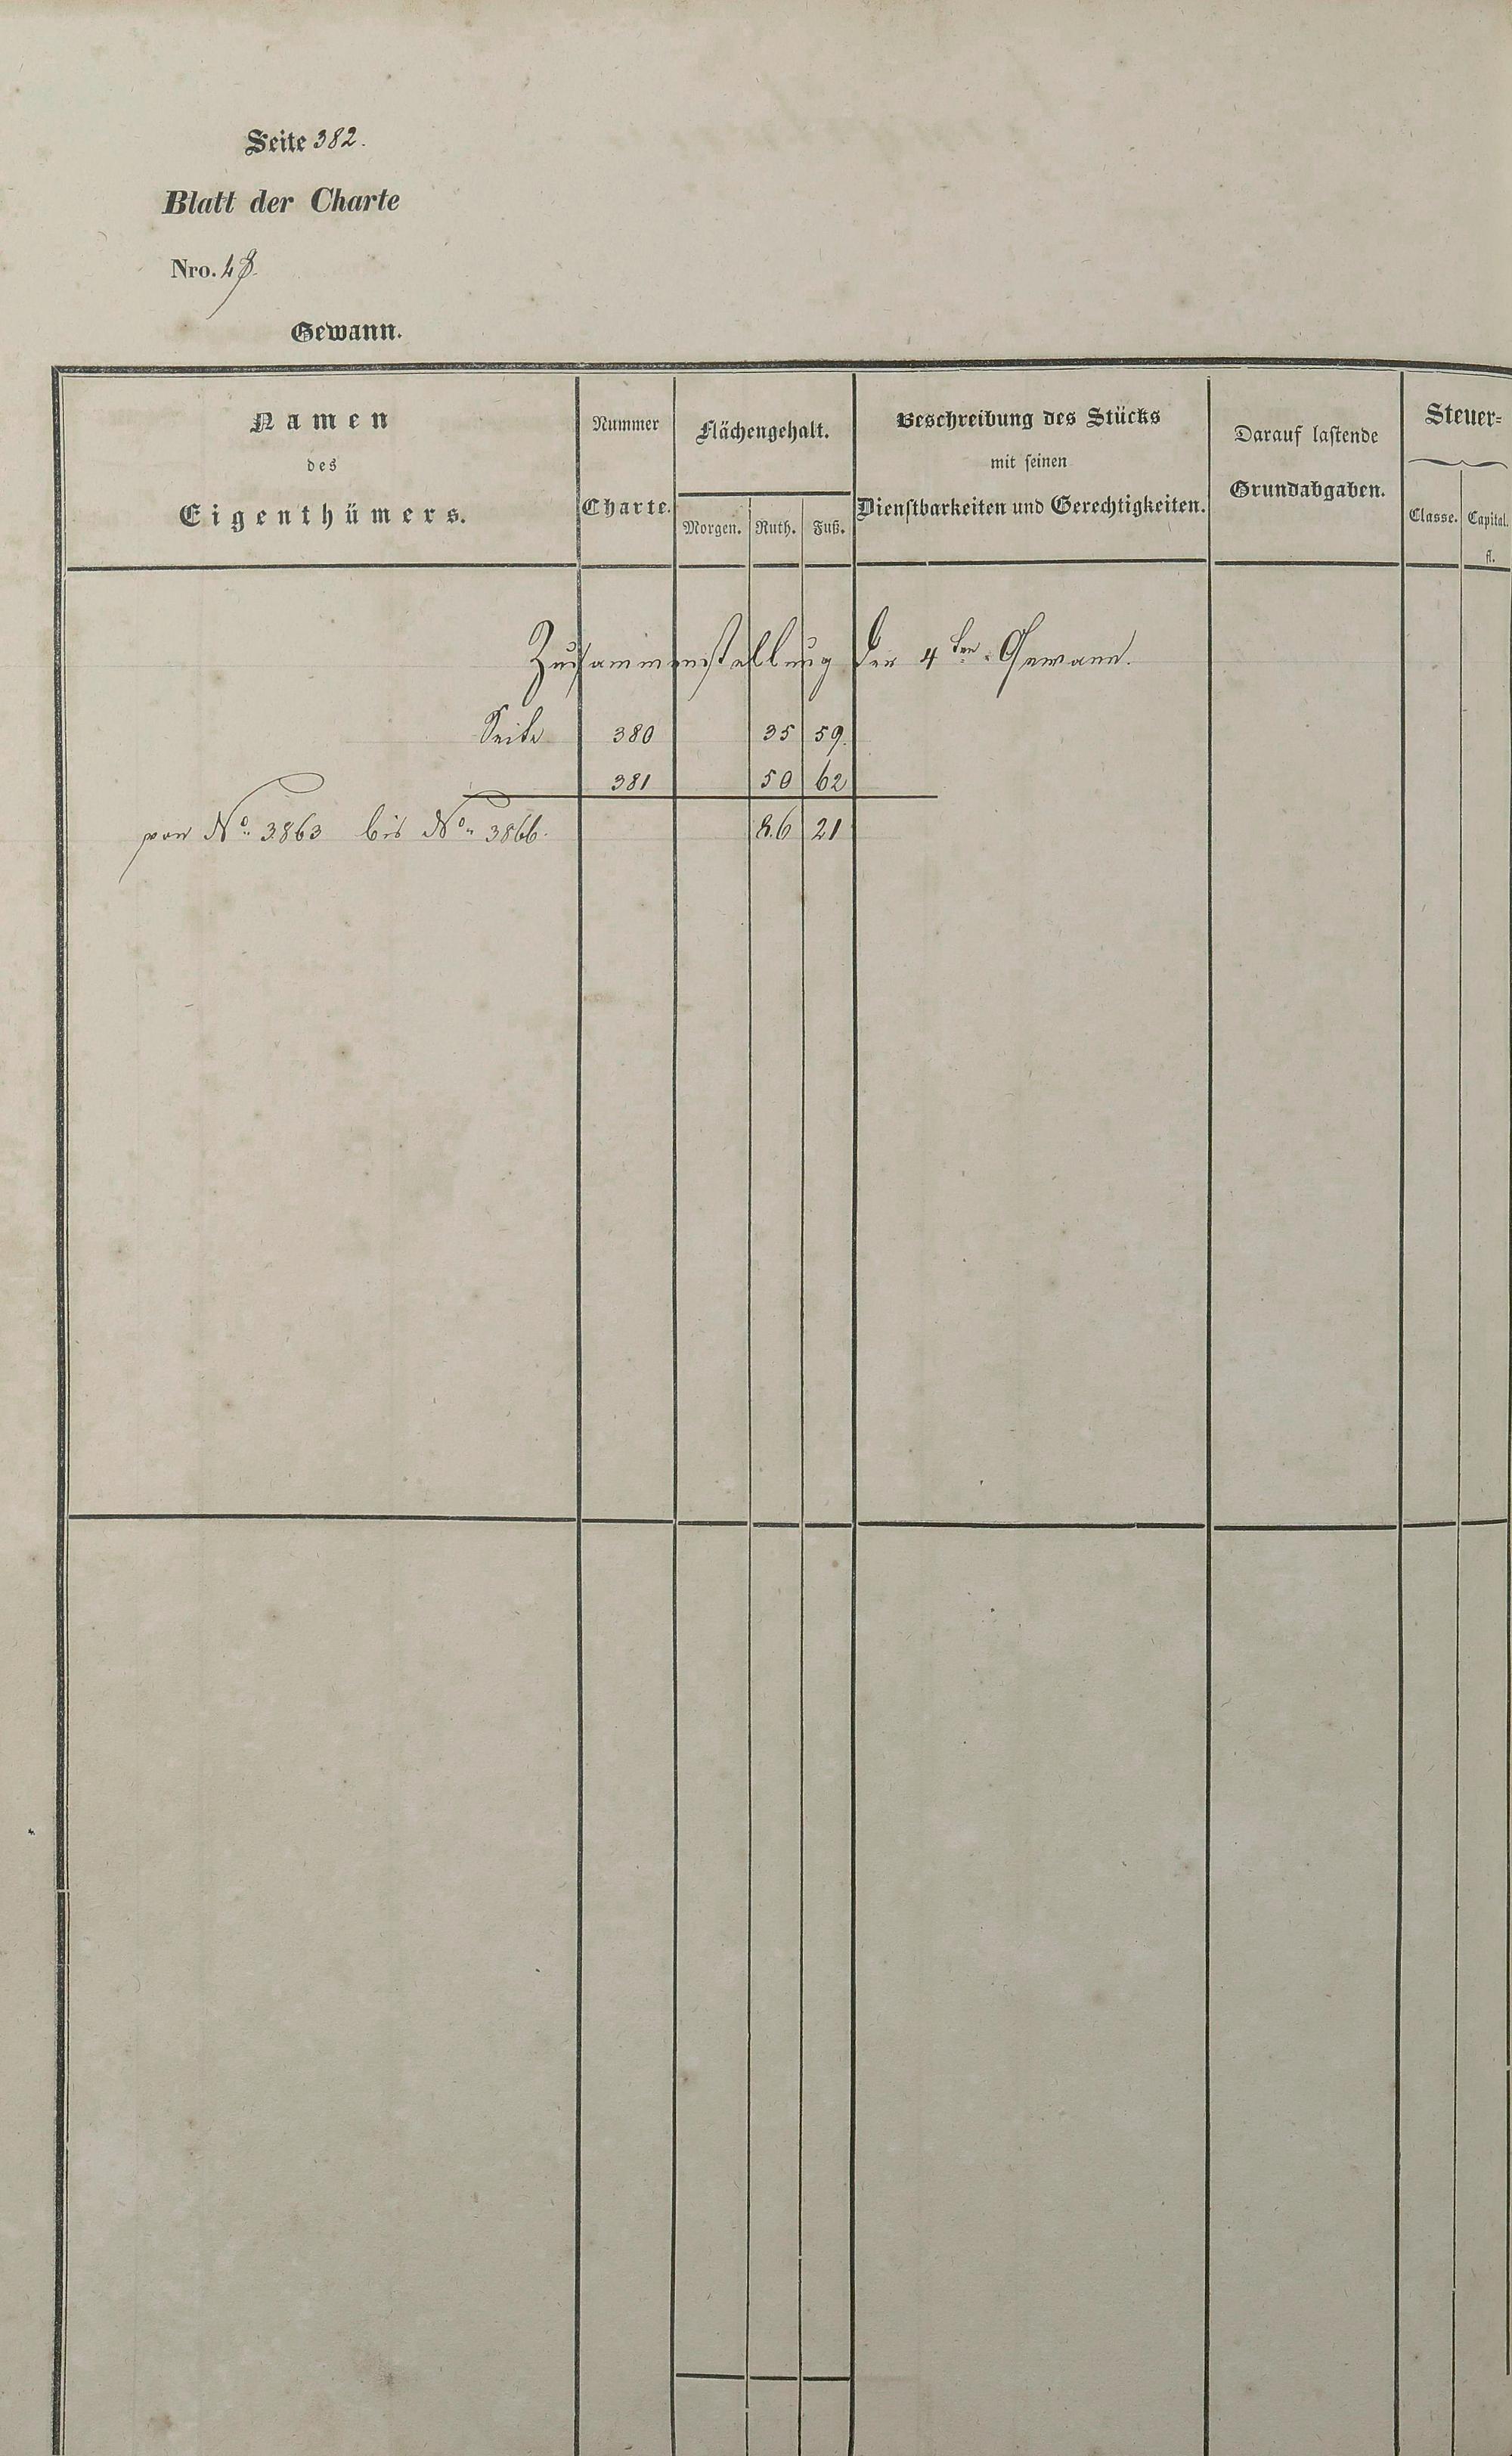 Seite 382.
Blatt der Charte
Nro. 48.
Gewann.
Namen
des
Eigenthümers.
Nummer
Charte.
Flächengehalt.
Morgen. Ruth. Fuß.
Beschreibung des Stücks
mit seinen
Dienstbarkeiten und Gerechtigkeiten.
Darauf lastende
Grundabgaben.
Steuer=
Classe. Capital.
fl.
Zusammenstellung der 4ten Gewann.
Seite 380 35 59.
381 50 62
von No. 3863 bis No. 3866. 86 21